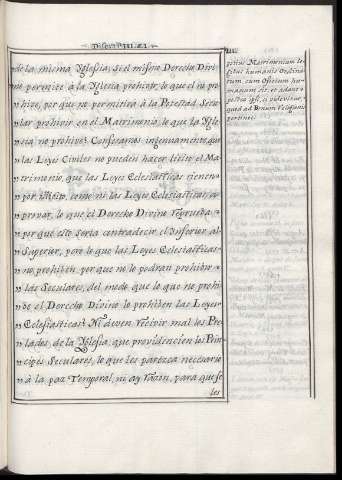 de la misma Yglesia, si el mismo Derecho Divi-
no permite à la Yglesia prohivir, lo que el no pro-
hive, por que no permitirá à la Potestad Secu-
lar prohivir en el Matrimonio, lo que la Ygle-
sia no prohive? Confesamos ingenuamente, que
las Leyes Civiles no pueden hacer licito el Ma-
trimonio, que las Leyes Eclesiasticas tienen
por ilicito, como ni las Leyes Eclesiasticas, a-
provar, lo que el Derecho Divino reprueba,
por que esto seria contradecir el Inferior al
Superior, pero lo que las Leyes Eclesiasticas
no prohiven, por que no lo podran prohivir
las Seculares, del modo que lo que no prohi-
ve el Derecho Divino lo prohiven las Leyes
Eclesiasticas? Ni deven recivir mal los Pre-
lados, de la Yglesia, que providencien los Prin-
cipes Seculares, lo que les parezca necesario
à la paz Temporal, ni ay razon, para que se
les
Matrimonium
humanis Ordina-
cum Officium hu-
si videatur,
quid ad Bonum Religionis
pertinet.